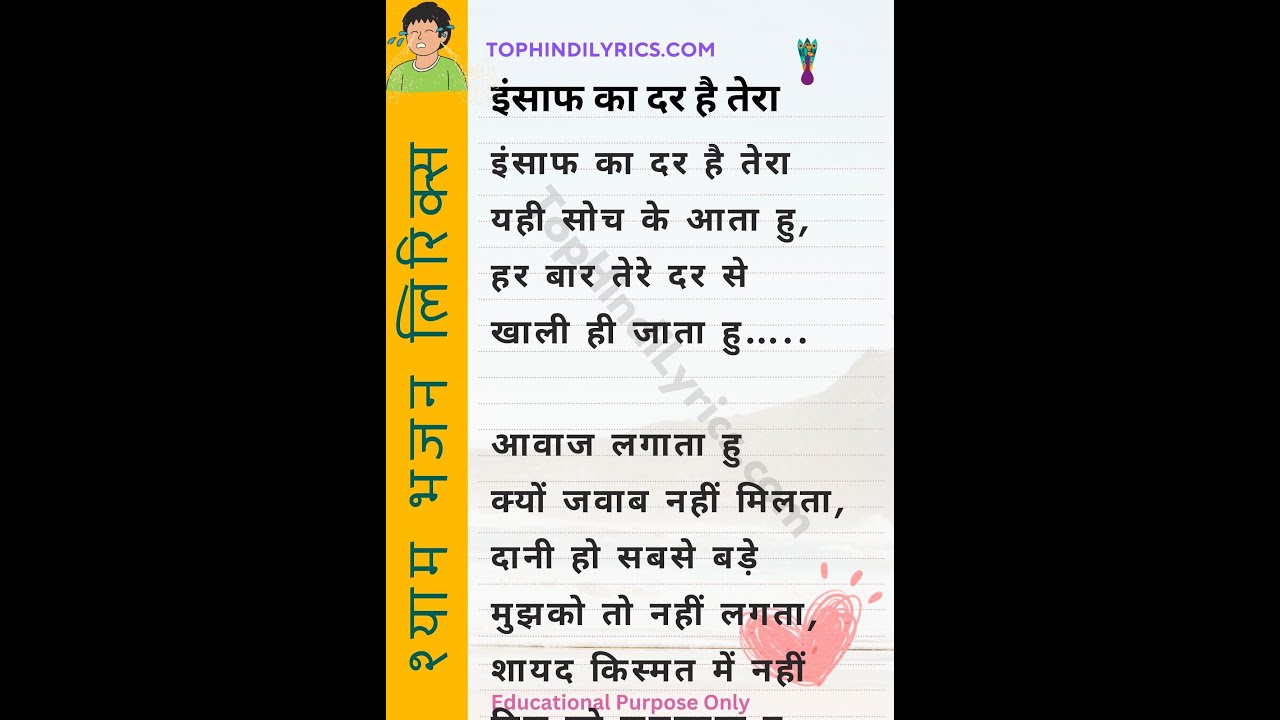 TOPHINDILYRICS.COM
इंसाफ का दर है तेरा
इंसाफ का दर है तेरा
यही सोच के आता हु,
हर बार तेरे दर से
खाली ही जाता हु.....
आवाज लगाता हु
क्यों जवाब नहीं मिलता,
दानी हो सबसे बड़े
मुझको तो नहीं लगता,
शायद किस्मत में नहीं
Educational Purpose Only
श्याम भजन लिरिक्स
TopHindiLyrics.com